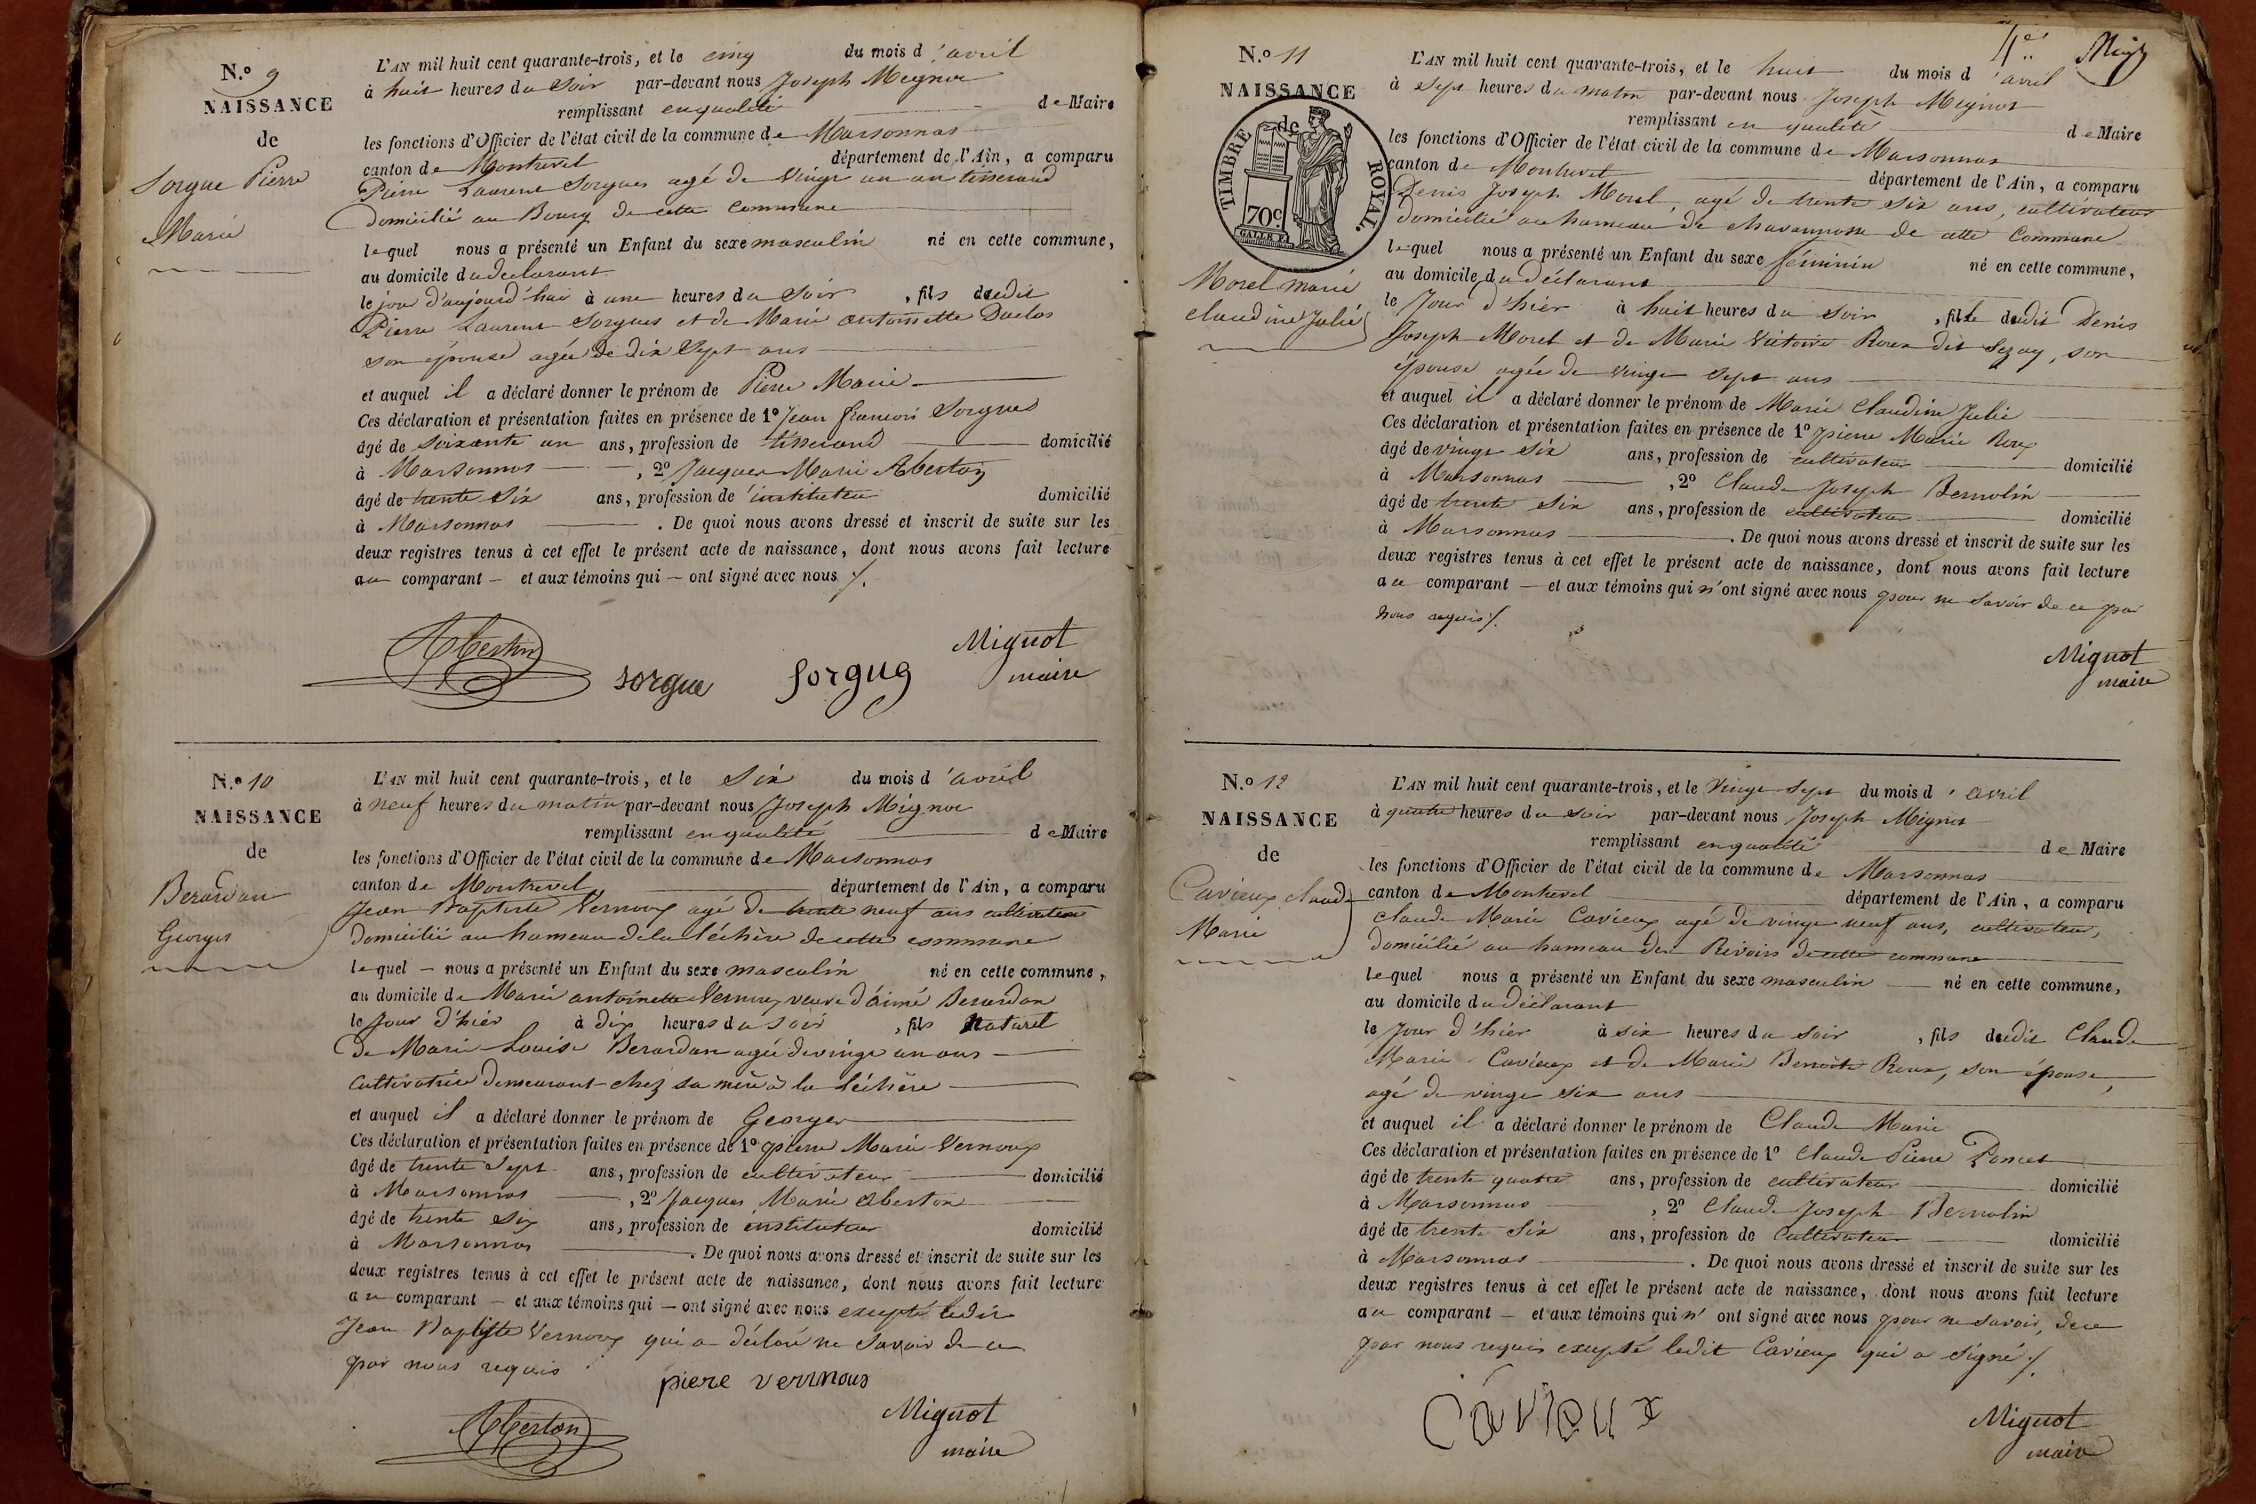 N.º 9
NAISSANCE
de
Sorgue Pierre
Marie
L'AN mil huit cent quarante-trois, et le cinq du mois d'avril
à huit heures du soir par-devant nous Joseph Mignot
remplissant en qualité de Maire
les fonctions d'Officier de l'état civil de la commune de Marsonnas
canton de Montrevel département de l'Ain, a comparu
Pierre Laurent Sorgues agé de vingt un an tisserand
domicilié au Bourg de cette commune
lequel nous a présenté un Enfant du sexe masculin né en cette commune,
au domicile du déclarant
le jour d'aujourd'hui à une heures du soir, fils dudit
Pierre Laurent Sorgues et de Marie antoinette Duclos
son épouse agée de dix sept ans
et auquel il a déclaré donner le prénom de Pierre Marie
Ces déclaration et présentation faites en présence de 1º Jean françois Sorgues
âgé de soixante un ans, profession de tisserand domicilié
à Marsonnas, 2º Jacques Marie Aberton
âgé de trente six ans, profession de instituteur domicilié
à Marsonnas. De quoi nous avons dressé et inscrit de suite sur les
deux registres tenus à cet effet le présent acte de naissance, dont nous avons fait lecture
au comparant et aux témoins qui ont signé avec nous ./.
Aberton sorgue sorgug Mignot
maire
N.º 10
NAISSANCE
de
Berardan
Georges
L'AN mil huit cent quarante-trois, et le six du mois d'avril
à neuf heures du matin par-devant nous Joseph Mignot
remplissant en qualité de Maire
les fonctions d'Officier de l'état civil de la commune de Marsonnas
canton de Montrevel département de l'Ain, a comparu
Jean Baptiste Vernoux agé de trente neuf ans cultivateur
domicilié au hameau de la léchère de cette commune
lequel nous a présenté un Enfant du sexe masculin né en cette commune,
au domicile de Marie antoinette Vernoux veuve d'aimé Berardan
le jour d'hier à dix heures du soir, fils naturel
de Marie Louise Berardan agée de vingt un ans
cultivatrice demeurant chez sa mère à la léchère
et auquel il a déclaré donner le prénom de Georges
Ces déclaration et présentation faites en présence de 1º pierre Marie Vernoux
âgé de trente sept ans, profession de cultivateur domicilié
à Marsonnas, 2º Jacques Marie Aberton
âgé de trente six ans, profession de instituteur domicilié
à Marsonnas. De quoi nous avons dressé et inscrit de suite sur les
deux registres tenus à cet effet le présent acte de naissance, dont nous avons fait lecture
au comparant et aux témoins qui ont signé avec nous excepté ledit
Jean Baptiste Vernoux qui a déclaré ne savoir de ce
par nous requis
piere vernoux
Aberton Mignot
maire
N.º 11
NAISSANCE
de
TIMBRE ROYAL.
70c
Morel marie
claudine Julie
L'AN mil huit cent quarante-trois, et le huit du mois d'avril
à sept heures du matin par-devant nous Joseph Mignot
remplissant en qualité de Maire
les fonctions d'Officier de l'état civil de la commune de Marsonnas
canton de Montrevel département de l'Ain, a comparu
Denis Joseph Morel, agé de trente six ans, cultivateur
domicilié au hameau de chavannosse de cette commune
lequel nous a présenté un Enfant du sexe féminin né en cette commune,
au domicile du déclarant
le Jour d'hier à huit heures du soir, fille dudit Denis
Joseph Morel et de Marie Victoire Roux dit Sezay, son
épouse agée de vingt sept ans
et auquel il a déclaré donner le prénom de Marie Claudine Julie
Ces déclaration et présentation faites en présence de 1º pierre Marie Roux
âgé de vingt six ans, profession de cultivateur domicilié
à Marsonnas, 2º Claude Joseph Bernolin
âgé de trente six ans, profession de cultivateur domicilié
à Marsonnas. De quoi nous avons dressé et inscrit de suite sur les
deux registres tenus à cet effet le présent acte de naissance, dont nous avons fait lecture
au comparant et aux témoins qui n'ont signé avec nous pour ne savoir de ce par
nous requis ./.
Mignot
maire
N.º 12
NAISSANCE
de
Cavieux claude
Marie
L'AN mil huit cent quarante-trois, et le Vingt sept du mois d'avril
à quatre heures du soir par-devant nous Joseph Mignot
remplissant en qualité de Maire
les fonctions d'Officier de l'état civil de la commune de Marsonnas
canton de Montrevel département de l'Ain, a comparu
claude Marie Cavieux agé de vingt neuf ans, cultivateur,
domicilié au hameau des Rivoirs de cette commune
lequel nous a présenté un Enfant du sexe masculin né en cette commune,
au domicile du déclarant
le Jour d'hier à six heures du soir, fils dudit Claude
Marie Cavieux et de Marie Benoite Roux, son épouse,
agé de vingt six ans
et auquel il a déclaré donner le prénom de Claude Marie
Ces déclaration et présentation faites en présence de 1º Claude Pierre Poncet
âgé de trente quatre ans, profession de cultivateur domicilié
à Marsonnas, 2º Claude Joseph Bernolin
âgé de trente six ans, profession de Cultivateur domicilié
à Marsonnas. De quoi nous avons dressé et inscrit de suite sur les
deux registres tenus à cet effet le présent acte de naissance, dont nous avons fait lecture
au comparant et aux témoins qui n'ont signé avec nous pour ne savoir, de ce
par nous requis excepté ledit Cavieux qui a signé ./.
Cavieux Mignot
maire